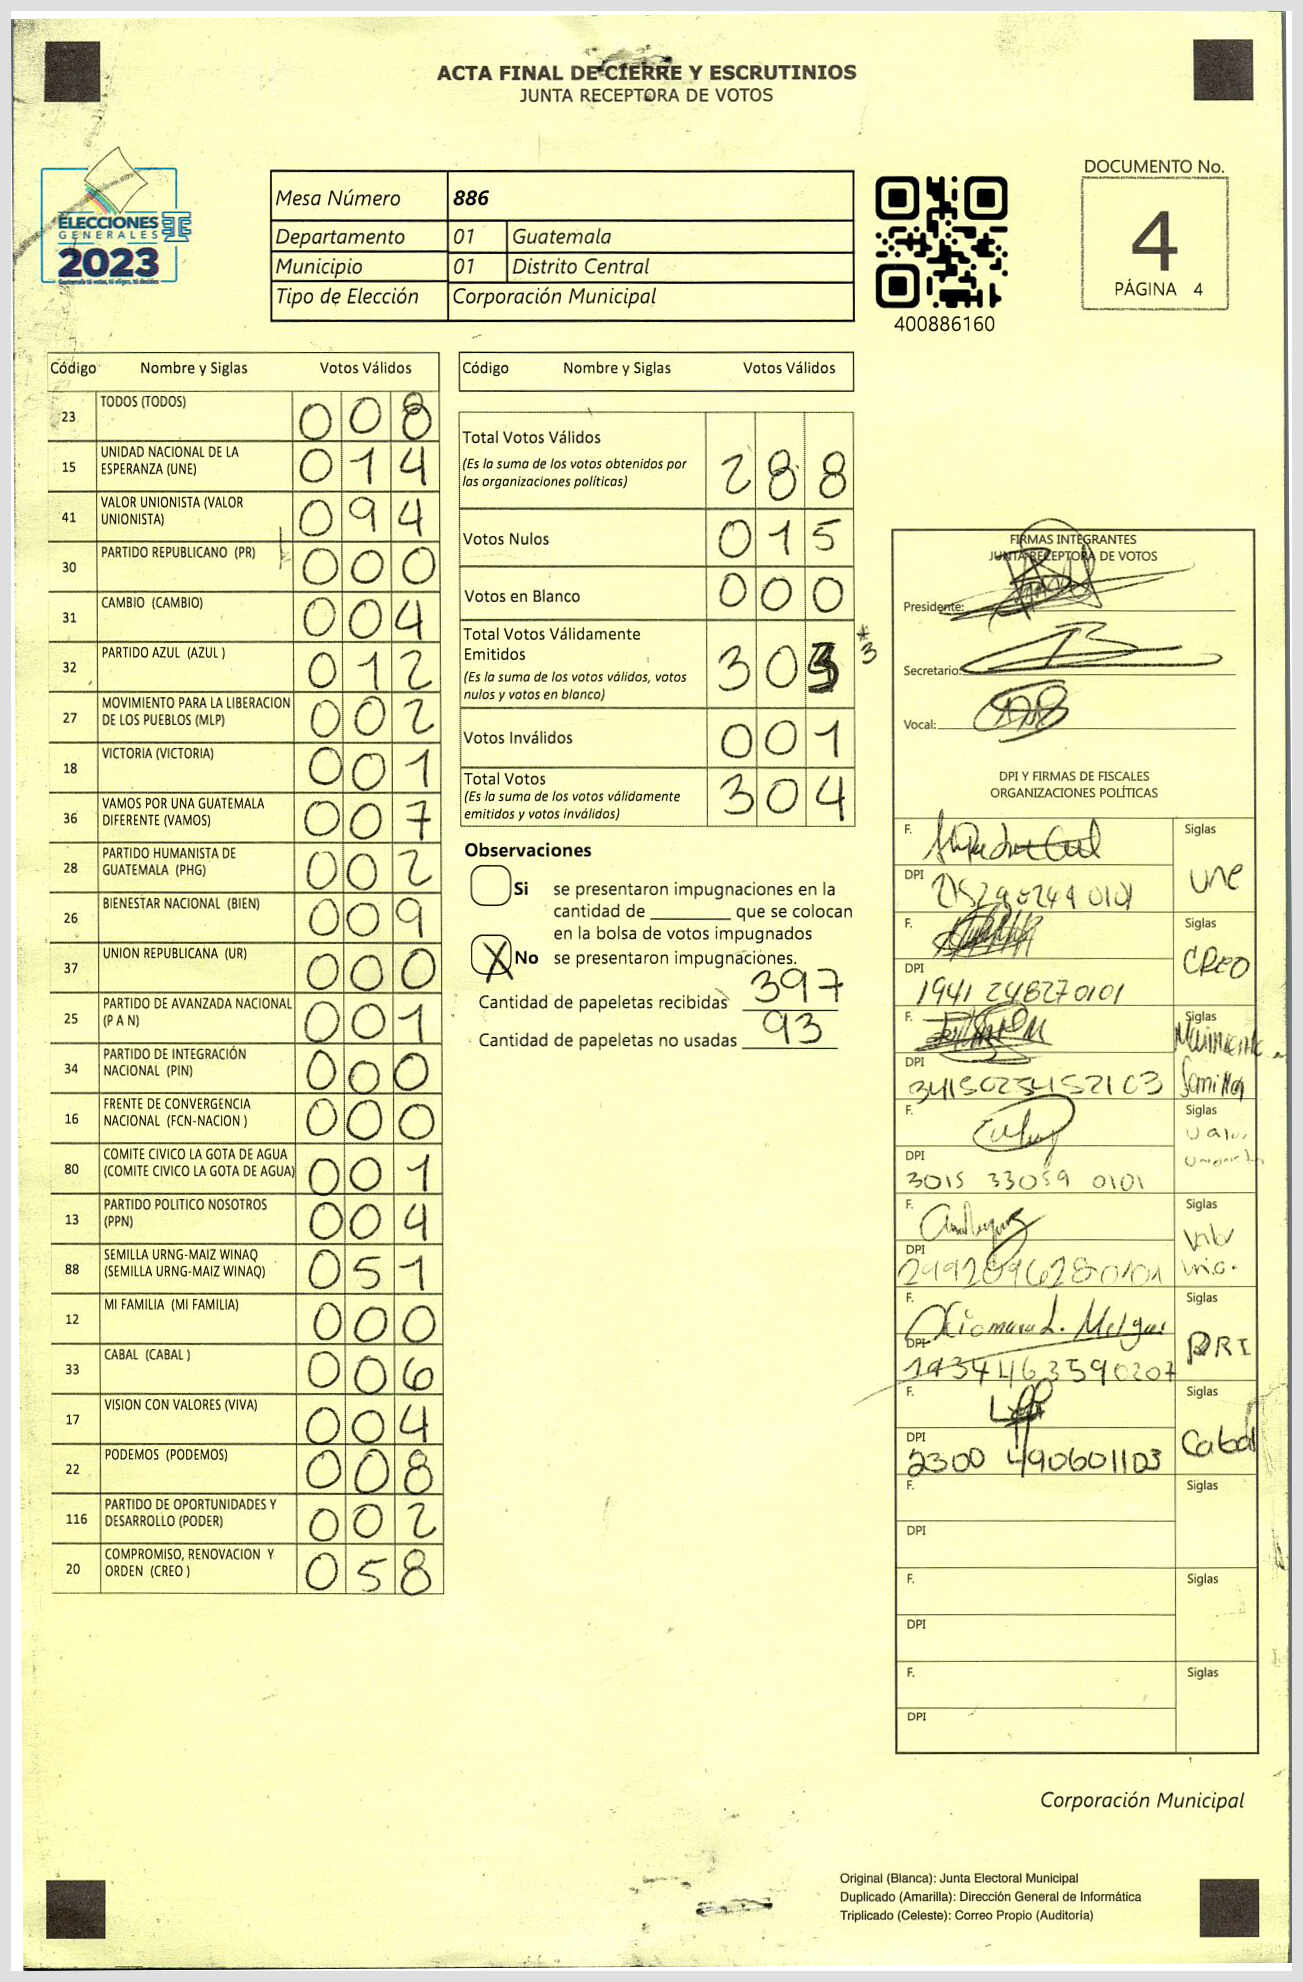 ACTA FINAL DE CIERRE Y ESCRUTINIOS
JUNTA RECEPTORA DE VOTOS
ELECCIONES
GENERALES
2023
Guatemala tú votas, tú eliges, tú decides
Mesa Número 886
Departamento 01 Guatemala
Municipio 01 Distrito Central
Tipo de Elección Corporación Municipal
400886160
DOCUMENTO No.
4
PÁGINA 4
Código Nombre y Siglas Votos Válidos
23 TODOS (TODOS) 008
15 UNIDAD NACIONAL DE LA
ESPERANZA (UNE) 014
41 VALOR UNIONISTA (VALOR
UNIONISTA) 094
30 PARTIDO REPUBLICANO (PR) 000
31 CAMBIO (CAMBIO) 004
32 PARTIDO AZUL (AZUL ) 012
27 MOVIMIENTO PARA LA LIBERACION
DE LOS PUEBLOS (MLP) 002
18 VICTORIA (VICTORIA) 001
36 VAMOS POR UNA GUATEMALA
DIFERENTE (VAMOS) 007
28 PARTIDO HUMANISTA DE
GUATEMALA (PHG) 002
26 BIENESTAR NACIONAL (BIEN) 009
37 UNION REPUBLICANA (UR) 000
25 PARTIDO DE AVANZADA NACIONAL
(P A N) 001
34 PARTIDO DE INTEGRACIÓN
NACIONAL (PIN) 000
16 FRENTE DE CONVERGENCIA
NACIONAL (FCN-NACION ) 000
80 COMITE CIVICO LA GOTA DE AGUA
(COMITE CIVICO LA GOTA DE AGUA) 001
13 PARTIDO POLITICO NOSOTROS
(PPN) 004
88 SEMILLA URNG-MAIZ WINAQ
(SEMILLA URNG-MAIZ WINAQ) 051
12 MI FAMILIA (MI FAMILIA) 000
33 CABAL (CABAL ) 006
17 VISION CON VALORES (VIVA) 004
22 PODEMOS (PODEMOS) 008
116 PARTIDO DE OPORTUNIDADES Y
DESARROLLO (PODER) 002
20 COMPROMISO, RENOVACION Y
ORDEN (CREO ) 058
Código Nombre y Siglas Votos Válidos
Total Votos Válidos
(Es la suma de los votos obtenidos por
las organizaciones políticas) 288
Votos Nulos 015
Votos en Blanco 000
Total Votos Válidamente
Emitidos
(Es la suma de los votos válidos, votos
nulos y votos en blanco) 303 *3
Votos Inválidos 001
Total Votos
(Es la suma de los votos válidamente
emitidos y votos inválidos) 304
Observaciones
Si se presentaron impugnaciones en la
cantidad de ________ que se colocan
en la bolsa de votos impugnados
X No se presentaron impugnaciones.
Cantidad de papeletas recibidas 397
Cantidad de papeletas no usadas 93
FIRMAS INTEGRANTES
JUNTA RECEPTORA DE VOTOS
Presidente:
Secretario:
Vocal:
DPI Y FIRMAS DE FISCALES
ORGANIZACIONES POLÍTICAS
F. Siglas
DPI une
F. Siglas
DPI 1941 24827 0101 CREO
F. Siglas
DPI Semilla
F. Siglas
DPI 3015 33059 0101 Valor
F. Siglas
DPI Valor
F. Siglas
DPI
F. Siglas
DPI 2300 490601103 Cabal
F. Siglas
DPI
F. Siglas
DPI
F. Siglas
DPI
Corporación Municipal
Original (Blanca): Junta Electoral Municipal
Duplicado (Amarilla): Dirección General de Informática
Triplicado (Celeste): Correo Propio (Auditoría)